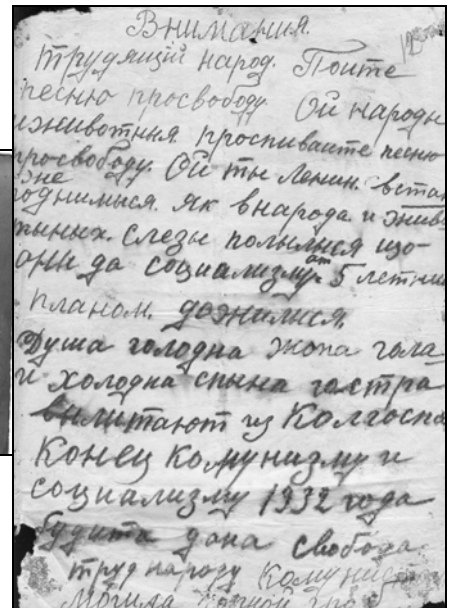 Внимания.
трудящій народ. Поите
песню просвободу. Ой народы
и животныя проспиваите песню
просвободу. Ой ты Ленин. встань
не
роднимься. Як внарода и жив-
тыных. слезы полылися що
они да социализму от 5 летним
планом. дожилися.
Душа голодна жопа гола
и холодна спына гостра
вылитают из Колгоспа
Конец комунизму и
социализму 1932 года
будита дана свобода.
труд народу
могила